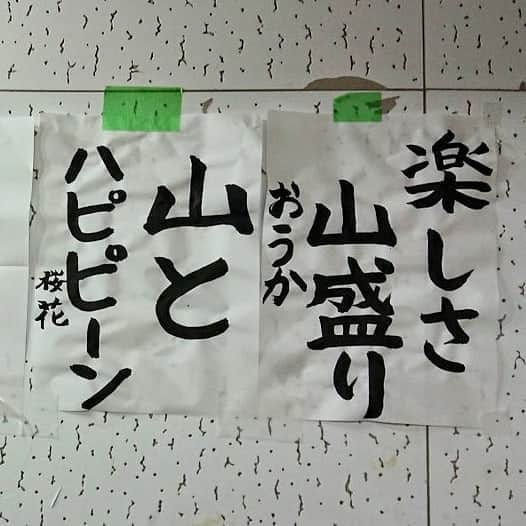 楽しさ
山盛り
おうか
山と
ハピピーン
桜花